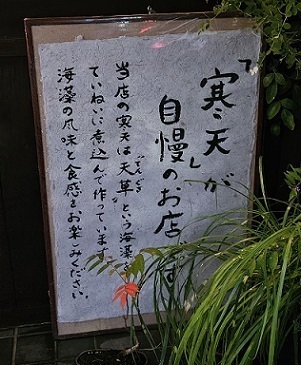 「寒天」が
自慢のお店です
当店の寒天は天草という海藻を
てんぐさ
ていねいに煮込んで作っています。
海藻の風味と食感をお楽しみください。